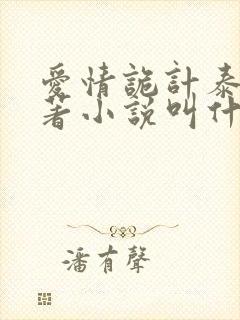 愛情詭計泰
著小説叫什
潘有聲